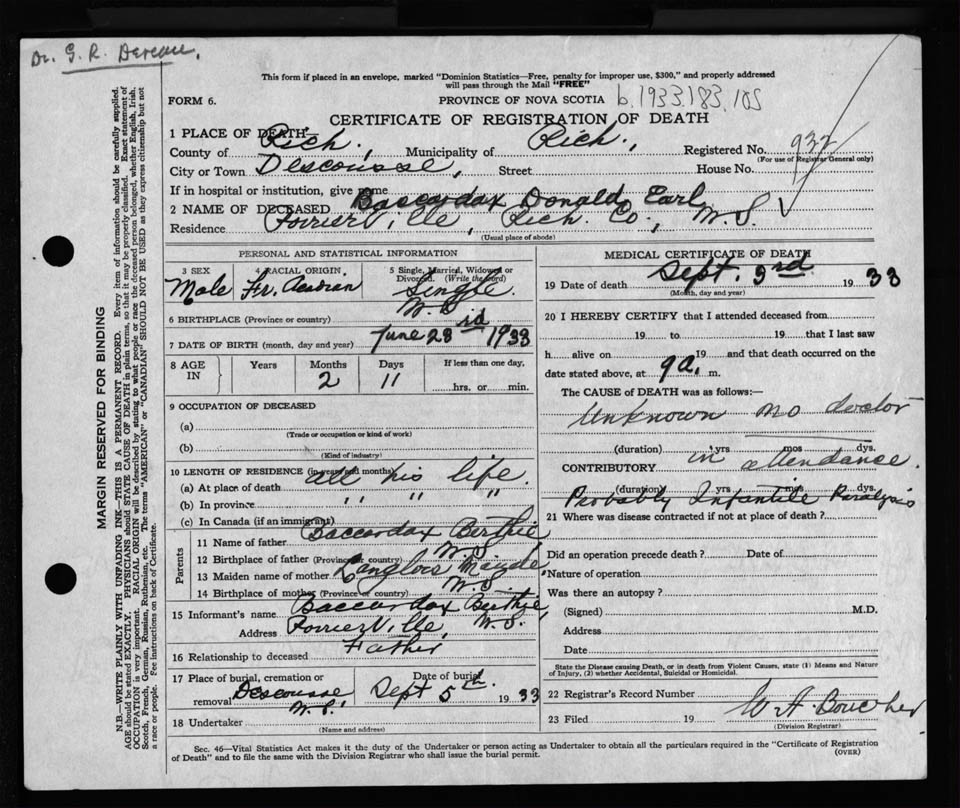 Dr. G. R. Deveau.
This form if placed in an envelope, marked "Dominion Statistics—Free, penalty for improper use, $300," and properly addressed
will pass through the Mail "FREE"
FORM 6.
PROVINCE OF NOVA SCOTIA b.1933.183.105
CERTIFICATE OF REGISTRATION OF DEATH
1 PLACE OF DEATH
County of Rich., Municipality of Rich., Registered No. 932
(For use of Registrar General only)
City or Town Descousse, Street House No.
If in hospital or institution, give name
2 NAME OF DECEASED Baccardax Donald Earl
Residence PoirrierVille, Rich. Co., N.S.
(Usual place of abode)
PERSONAL AND STATISTICAL INFORMATION
3 SEX 4 RACIAL ORIGIN. 5 Single, Married, Widowed or
Divorced. (Write the word)
Male Fr. Acadian Single.
6 BIRTHPLACE (Province or country) N.S
7 DATE OF BIRTH (month, day and year) June 23rd 1933
8 AGE IN Years Months Days If less than one day,
2 11 hrs. or min.
9 OCCUPATION OF DECEASED
(a)
(Trade or occupation or kind of work)
(b)
(Kind of industry)
10 LENGTH OF RESIDENCE (in years and months)
(a) At place of death all his life.
(b) In province " " "
(c) In Canada (if an immigrant)
Parents
11 Name of father Baccardax Berthie
12 Birthplace of father (Province or country) N.S
13 Maiden name of mother Langlois Maude
14 Birthplace of mother (Province or country) N.S.
15 Informant's name Baccardax Berthie,
Address PoirrierVille, N.S.
16 Relationship to deceased Father
17 Place of burial, cremation or Date of burial
removal Descousse N.S. Sept 5th 1933
18 Undertaker
(Name and address)
MEDICAL CERTIFICATE OF DEATH
19 Date of death Sept. 3rd 1933
(Month, day and year)
20 I HEREBY CERTIFY that I attended deceased from
19 to 19 that I last saw
h alive on 19 and that death occurred on
date stated above, at 9a. m.
The CAUSE of DEATH was as follows:
Unknown no doctor
(duration) yrs mos dys.
in attendance.
CONTRIBUTORY
(duration) yrs mos dys.
Probably Infantile Paralysis
21 Where was disease contracted if not at place of death?
Did an operation precede death? Date of
Nature of operation
Was there an autopsy?
(Signed) M.D.
Address
Date
State the Disease causing Death, or in death from Violent Causes, state (1) Means and Nature
of Injury, (2) whether Accidental, Suicidal or Homicidal.
22 Registrar's Record Number
23 Filed 19 W A Boucher
(Division Registrar)
Sec. 46—Vital Statistics Act makes it the duty of the Undertaker or person acting as Undertaker to obtain all the particulars required in the "Certificate of Registration
of Death" and to file the same with the Division Registrar who shall issue the burial permit. (OVER)
MARGIN RESERVED FOR BINDING
N.B.—WRITE PLAINLY WITH UNFADING INK—THIS IS A PERMANENT RECORD. Every item of information should be carefully supplied.
AGE should be stated EXACTLY. PHYSICIANS should STATE CAUSE OF DEATH in plain terms, so that it may be properly classified. Exact statement of
OCCUPATION is very important. RACIAL ORIGIN will be described by stating to what people or race the deceased person belonged, whether English, Irish,
Scotch, French, German, Russian, Ruthenian, etc. The terms "AMERICAN" or "CANADIAN" SHOULD NOT BE USED as they express citizenship but not
a race or people. Fee instructions on back of Certificate.